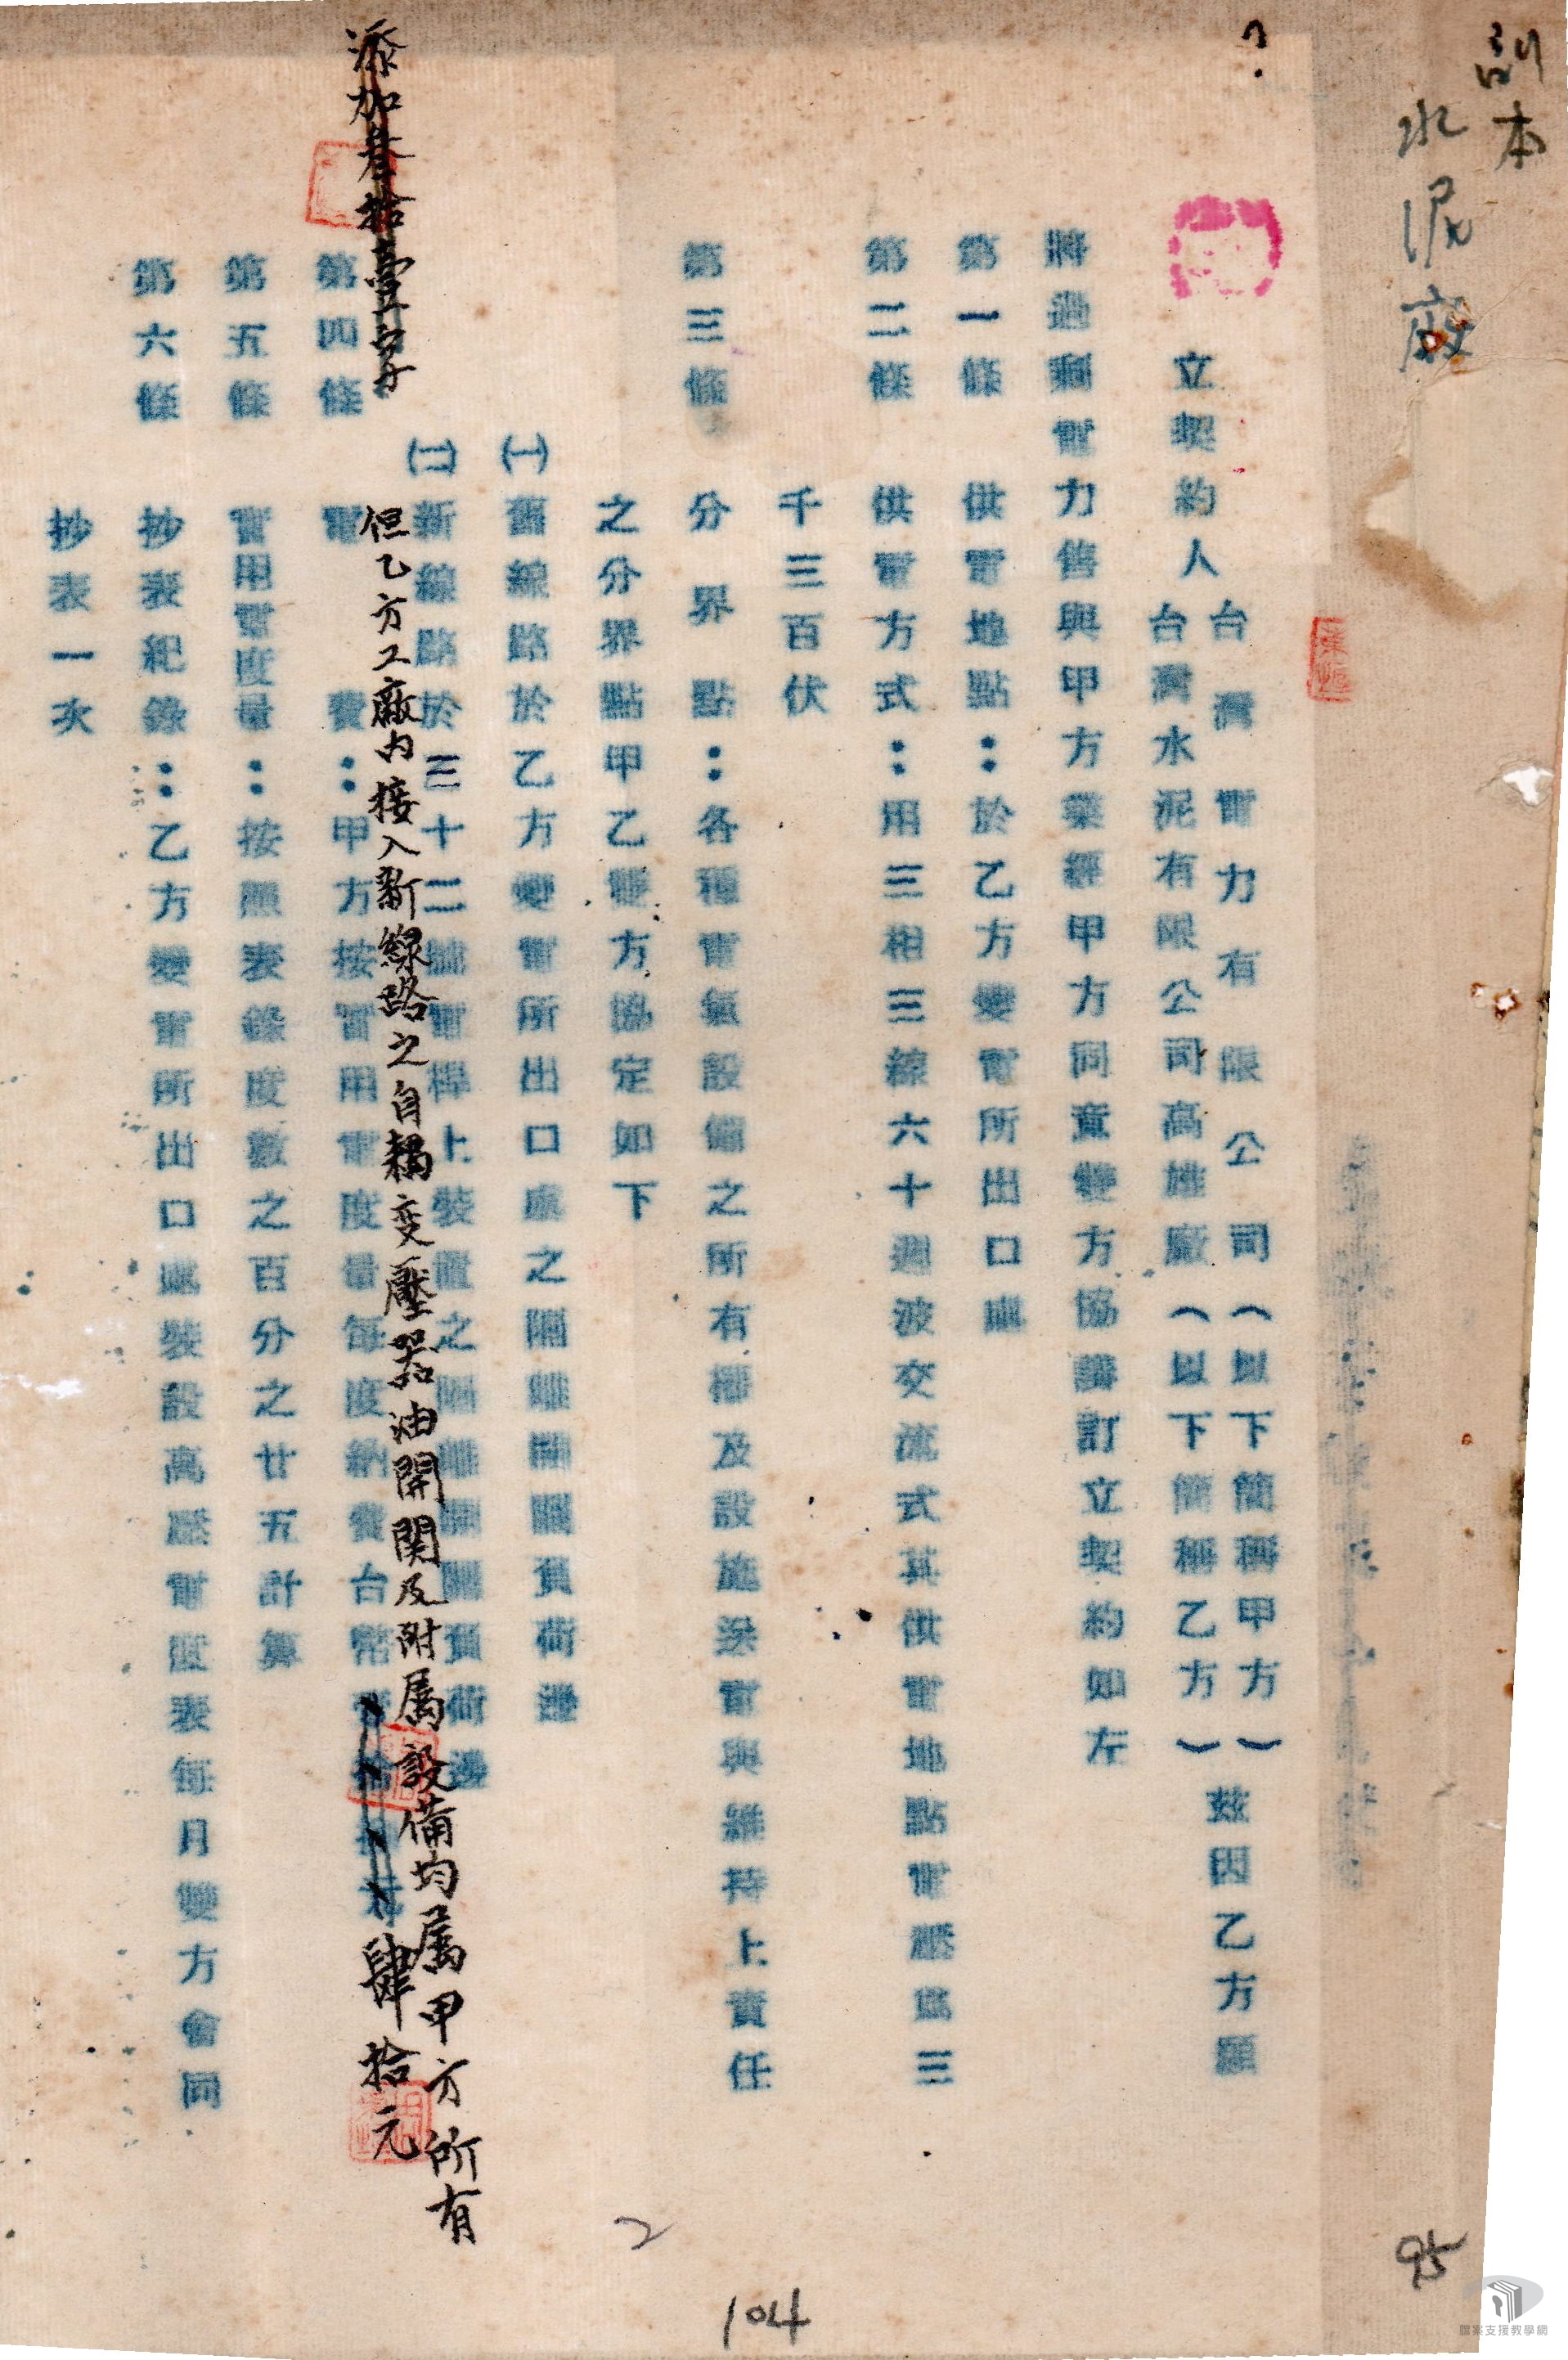 副本
水泥廠
立契約人
台灣電力有限公司(以下簡稱甲方)
台灣水泥有限公司高雄廠(以下簡稱乙方)
茲因乙方願
將過剩電力售與甲方業經甲方同意雙方協議訂立契約如左
第一條 供電地點:於乙方變電所出口處
第二條 供電方式:用三相三線六十週波交流式其供電地點電壓為三
千三百伏
第三條 分界點:各種電氣設備之所有權及設施染電與維持上責任
之分界點甲乙雙方協定如下
(一)舊線路於乙方變電所出口處之隔離開關負荷邊
(二)新線路於三十二號電桿上裝置之隔離開關負荷邊
但乙方工廠內接入新線路之自耦变壓器油開関及附属設備均属甲方所有
添加叁拾壹字
第四條 電費:甲方按實用電度量每度納費台幣
肆拾元
第五條 實用電度量:按照表錄度數之百分之廿五計算
第六條 抄表紀錄:乙方變電所出口處裝設高壓電度表每月雙方會同
抄表一次
2
104
95
檔案支援教學網